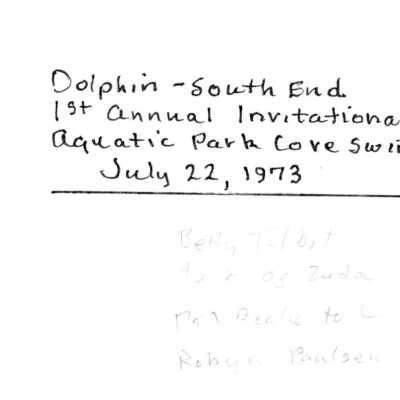 Dolphin - South End
1st Annual Invitationa
Aquatic Park Cove Swi
July 22, 1973
Betty Talbot
Og Zuda
to
Robyn Paulsen